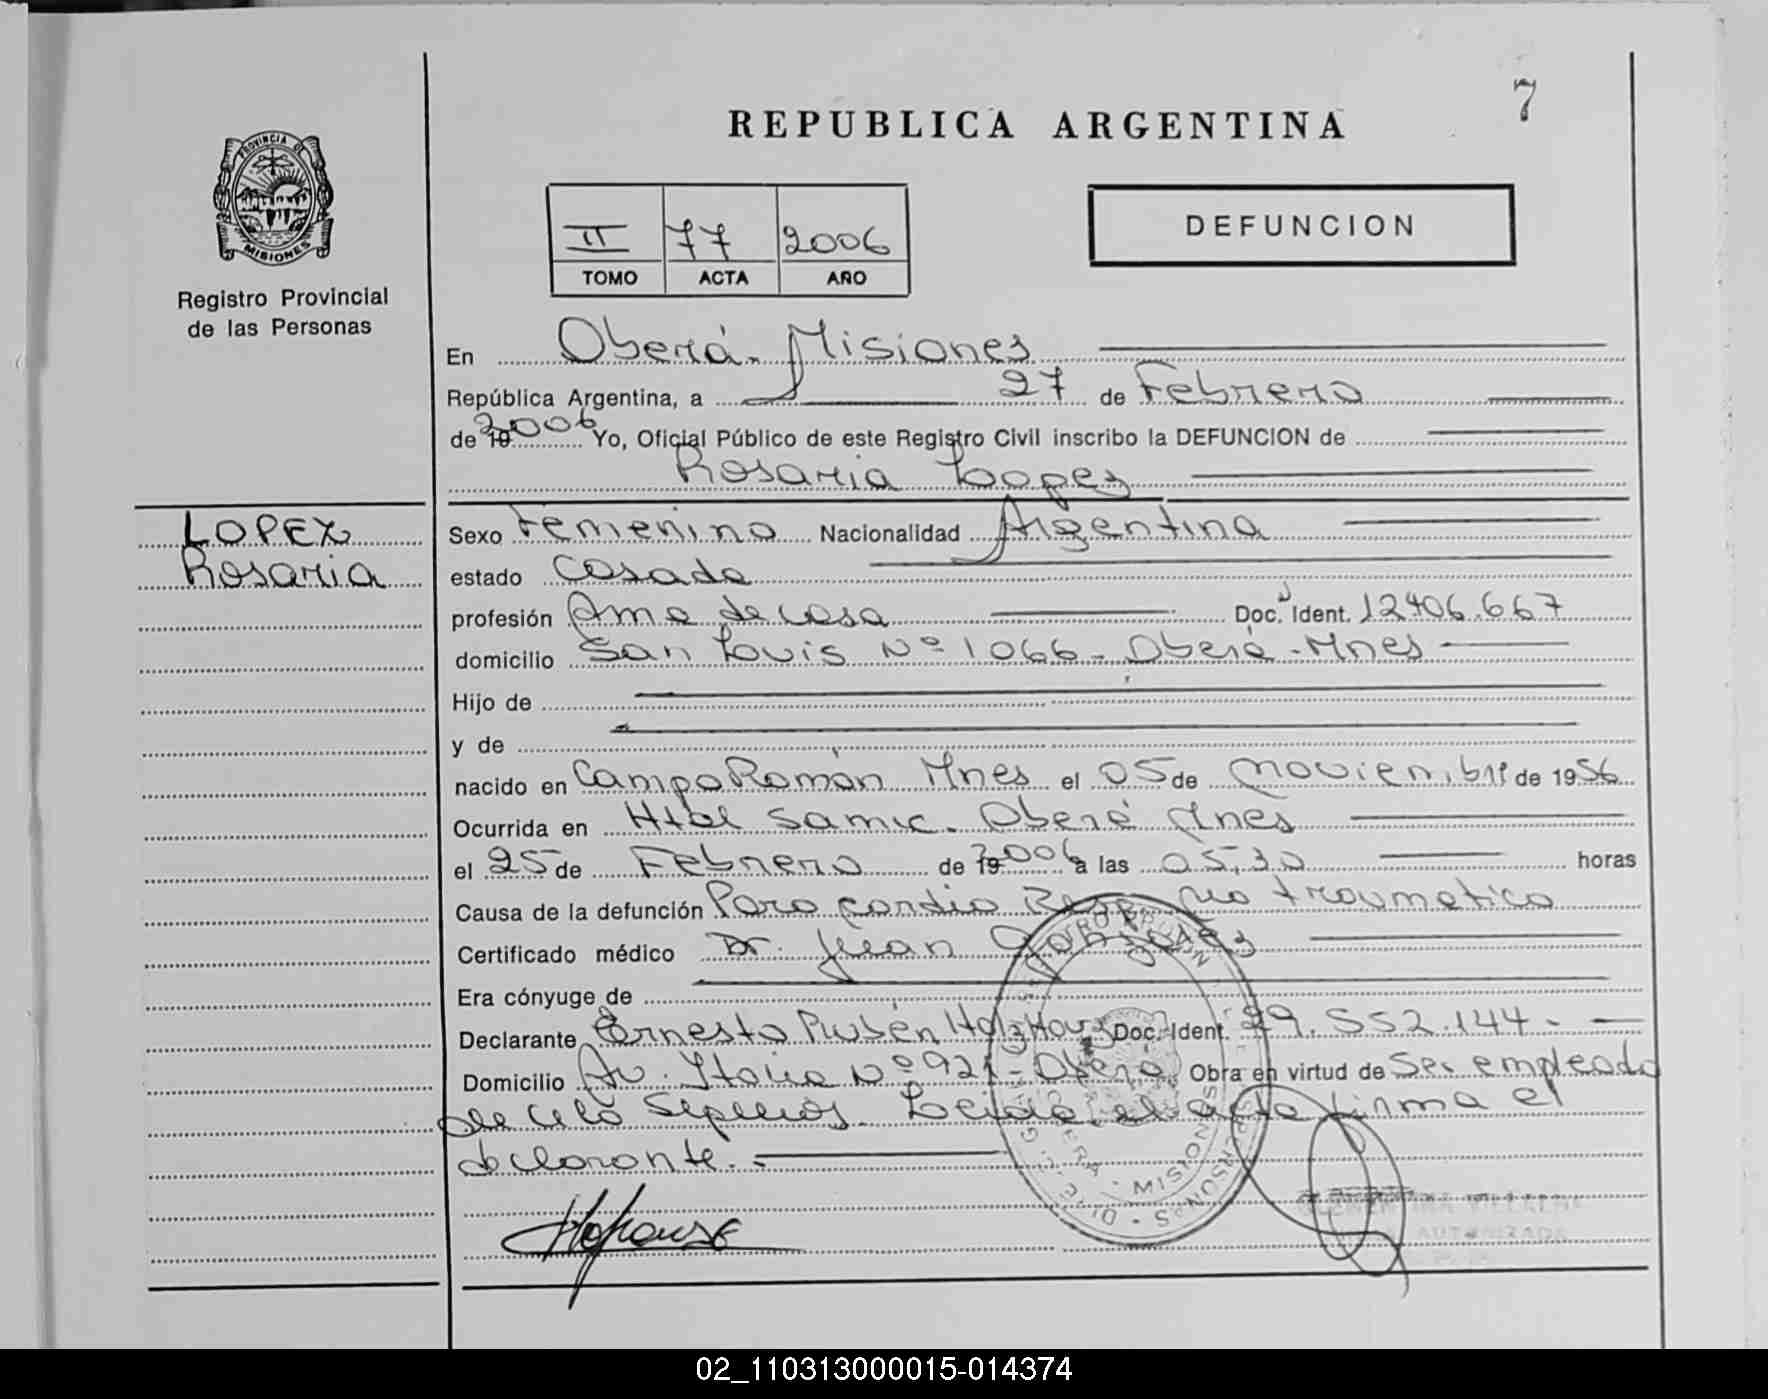 7
REPUBLICA ARGENTINA
PROVINCIA DE
MISIONES
II 77 2006
TOMO ACTA AÑO
DEFUNCION
Registro Provincial
de las Personas
En Oberá. Misiones
República Argentina, a 27 de Febrero
de 19 2006 Yo, Oficial Público de este Registro Civil inscribo la DEFUNCION de
Rosaria Lopez
LOPEZ
Rosaria
Sexo Femenino Nacionalidad Argentina
estado Casada
profesión Ama de casa Doc. Ident. 12406.667
domicilio San Louis Nº 1066 - Oberá - Mnes
Hijo de
y de
nacido en Campo Román Mnes el 05 de noviembre de 1956
Ocurrida en Htal Samic. Oberá Mnes
el 25 de Febrero de 19 2006 a las 05,30 horas
Causa de la defunción Paro cardio traumatico
Certificado médico Dr. Juan
Era cónyuge de
Declarante Ernesto Rubén Doc. Ident. 29.552.144.
Domicilio Av. Italia Nº 921 - Oberá Obra en virtud de Ser empleado
de Sepelios. Leida el acta firma el
declarante.
MISIONES
02_110313000015-014374